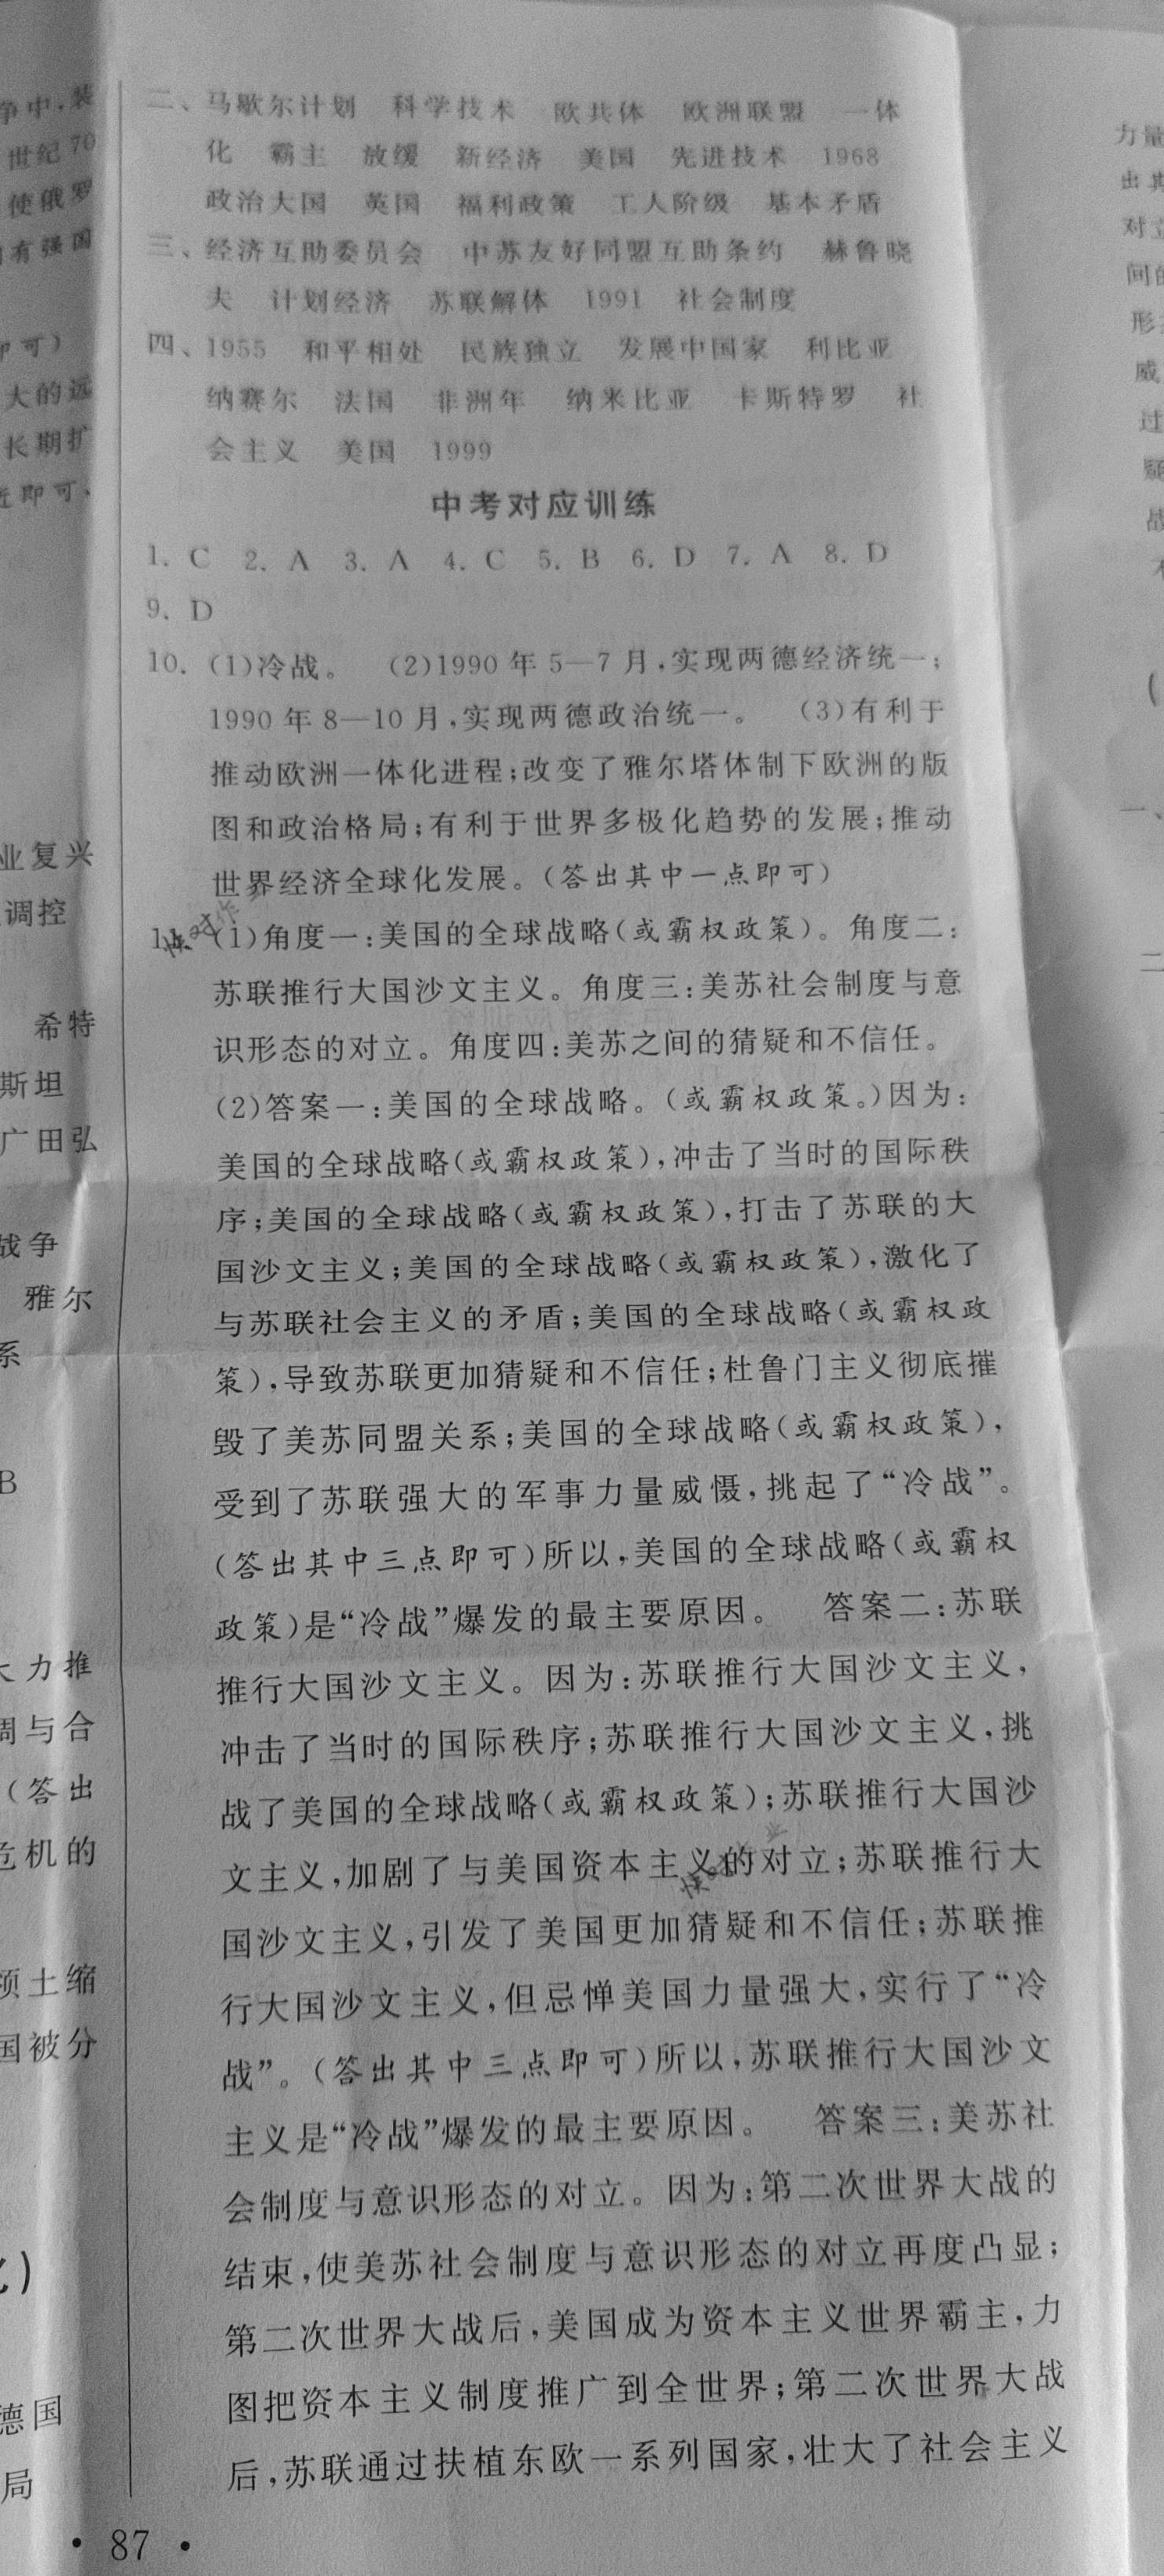 争中,装
世纪70
使俄罗
有强国
即可)
大的远
长期扩
近即可、
业复兴
调控
希特
斯坦
广田弘
战争
雅尔
系
B
大力推
调与合
(答出
危机的
领土缩
国被分
德国
局
• 87 •
二、马歇尔计划 科学技术 欧共体 欧洲联盟 一体
化 霸主 放缓 新经济 美国 先进技术 1968
政治大国 英国 福利政策 工人阶级 基本矛盾
三、经济互助委员会 中苏友好同盟互助条约 赫鲁晓
夫 计划经济 苏联解体 1991 社会制度
四、1955 和平相处 民族独立 发展中国家 利比亚
纳赛尔 法国 非洲年 纳米比亚 卡斯特罗 社
会主义 美国 1999
中考对应训练
1. C 2. A 3. A 4. C 5. B 6. D 7. A 8. D
9. D
10. (1)冷战。 (2)1990年5—7月,实现两德经济统一;
1990年8—10月,实现两德政治统一。 (3)有利于
推动欧洲一体化进程;改变了雅尔塔体制下欧洲的版
图和政治格局;有利于世界多极化趋势的发展;推动
世界经济全球化发展。(答出其中一点即可)
11. (1)角度一:美国的全球战略(或霸权政策)。角度二:
苏联推行大国沙文主义。角度三:美苏社会制度与意
识形态的对立。角度四:美苏之间的猜疑和不信任。
(2)答案一:美国的全球战略。(或霸权政策。)因为:
美国的全球战略(或霸权政策),冲击了当时的国际秩
序;美国的全球战略(或霸权政策),打击了苏联的大
国沙文主义;美国的全球战略(或霸权政策),激化了
与苏联社会主义的矛盾;美国的全球战略(或霸权政
策),导致苏联更加猜疑和不信任;杜鲁门主义彻底摧
毁了美苏同盟关系;美国的全球战略(或霸权政策),
受到了苏联强大的军事力量威慑,挑起了“冷战”。
(答出其中三点即可)所以,美国的全球战略(或霸权
政策)是“冷战”爆发的最主要原因。 答案二:苏联
推行大国沙文主义。因为:苏联推行大国沙文主义,
冲击了当时的国际秩序;苏联推行大国沙文主义,挑
战了美国的全球战略(或霸权政策);苏联推行大国沙
文主义,加剧了与美国资本主义的对立;苏联推行大
国沙文主义,引发了美国更加猜疑和不信任;苏联推
行大国沙文主义,但忌惮美国力量强大,实行了“冷
战”。(答出其中三点即可)所以,苏联推行大国沙文
主义是“冷战”爆发的最主要原因。 答案三:美苏社
会制度与意识形态的对立。因为:第二次世界大战的
结束,使美苏社会制度与意识形态的对立再度凸显;
第二次世界大战后,美国成为资本主义世界霸主,力
图把资本主义制度推广到全世界;第二次世界大战
后,苏联通过扶植东欧一系列国家,壮大了社会主义
力量
出其
对立
间的
形
威
过
疑
战
一、
二